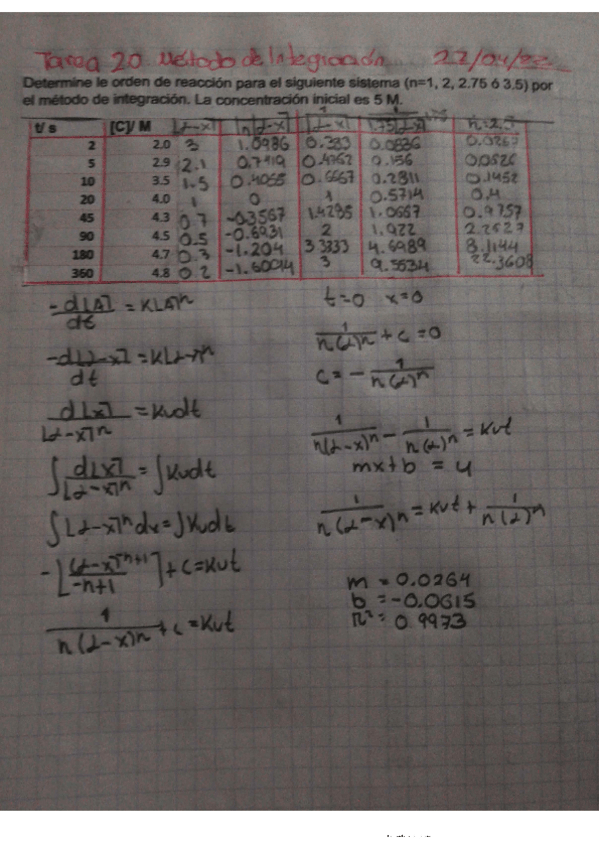 Tarea 20 Método de Integración 22/04/22
Determine le orden de reacción para el siguiente sistema (n=1, 2, 2.75 ó 3.5) por
el método de integración. La concentración inicial es 5 M.
t/ s [C]/ M [α-x] ln[α-x]
2 2.0 3 1.0986 0.333 0.0836 0.0267
5 2.9 2.1 0.7419 0.4762 0.156 0.0626
10 3.5 1.5 0.4055 0.6667 0.2811 0.1452
20 4.0 1 0 1 0.5714 0.4
45 4.3 0.7 -0.3567 1.4285 1.0667 0.9757
90 4.5 0.5 -0.6931 2 1.922 2.2627
180 4.7 0.3 -1.204 3.3333 4.6989 8.1144
360 4.8 0.2 -1.60944 3 9.5534 22.3608
-d[A]/dt = K[A]^n
t=0 x=0
-d[α-x]/dt = K[α-x]^n
1/n(α)^n + c = 0
c = - 1/n(α)^n
d[x]/[α-x]^n = Kvdt
1/n(α-x)^n - 1/n(α)^n = Kvt
mx+b = y
∫ d[x]/[α-x]^n = ∫Kvdt
∫[α-x]^n dx = ∫Kvdt
1/n(α-x)^n = Kvt + 1/n(α)^n
-[(α-x)^n+1/-n+1] + c = Kvt
m = 0.0264
b = -0.0615
r² = 0.9973
1/n(α-x)^n + c = Kvt